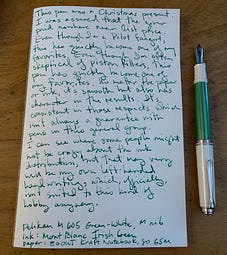 This pen was a Christmas present.
I was assured that the price
paid nowhere near list price.
Even though I'm a Pilot fanboy,
this has quickly become one of my
favorites. Even though I'm often
skeptical of piston fillers, this
pen has quickly become one of
my favorites.
it's smooth but also has
character in the results. It's
consistent in those respects, which
isn't always a guarantee with
pens in this general group.
I can see where some people might
not be crazy about the ink
distribution, but that may very
well be my own left-handed
hand writing, which, officially,
isn't suited to this kind of
hobby anyway.
Pelikan M605 Green-White, M nib
ink: Mont Blanc Irish Green
paper: Kraft Notebook, 80 GSM